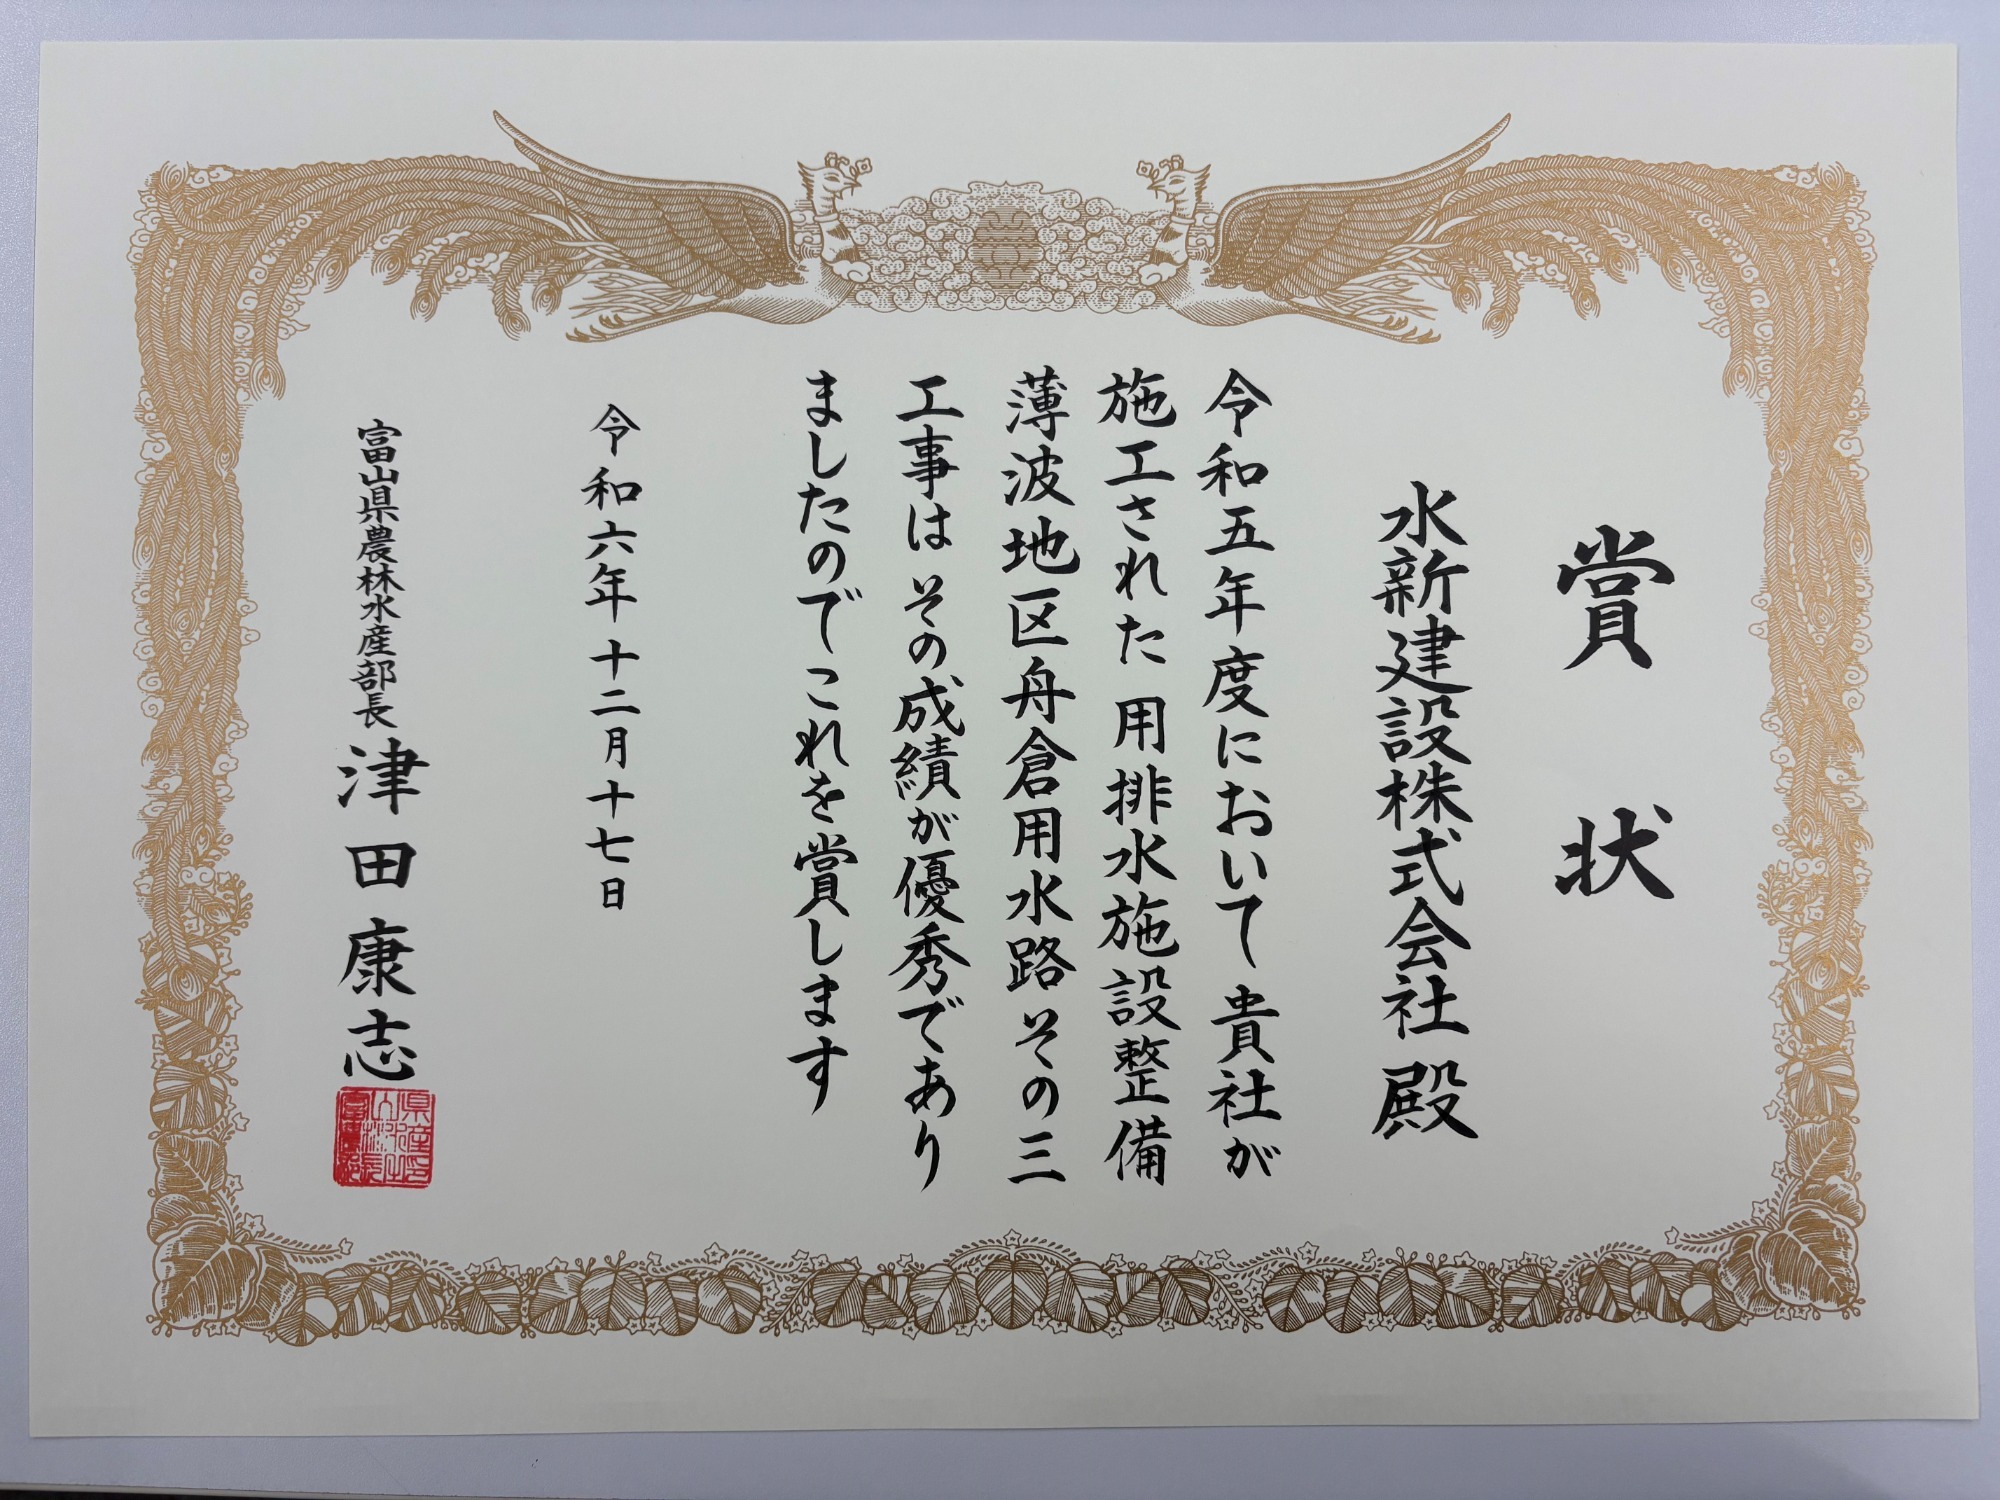 賞状
水新建設株式会社 殿
令和五年度において 貴社が
施工された 用排水施設整備
薄波地区舟倉用水路 その三
工事は その成績が優秀であり
ましたのでこれを賞します
令和六年十二月十七日
富山県農林水産部長 津田康志